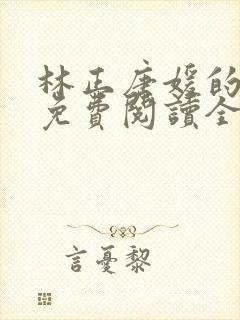 林正唐媛的
免費閱讀全
言憂黎